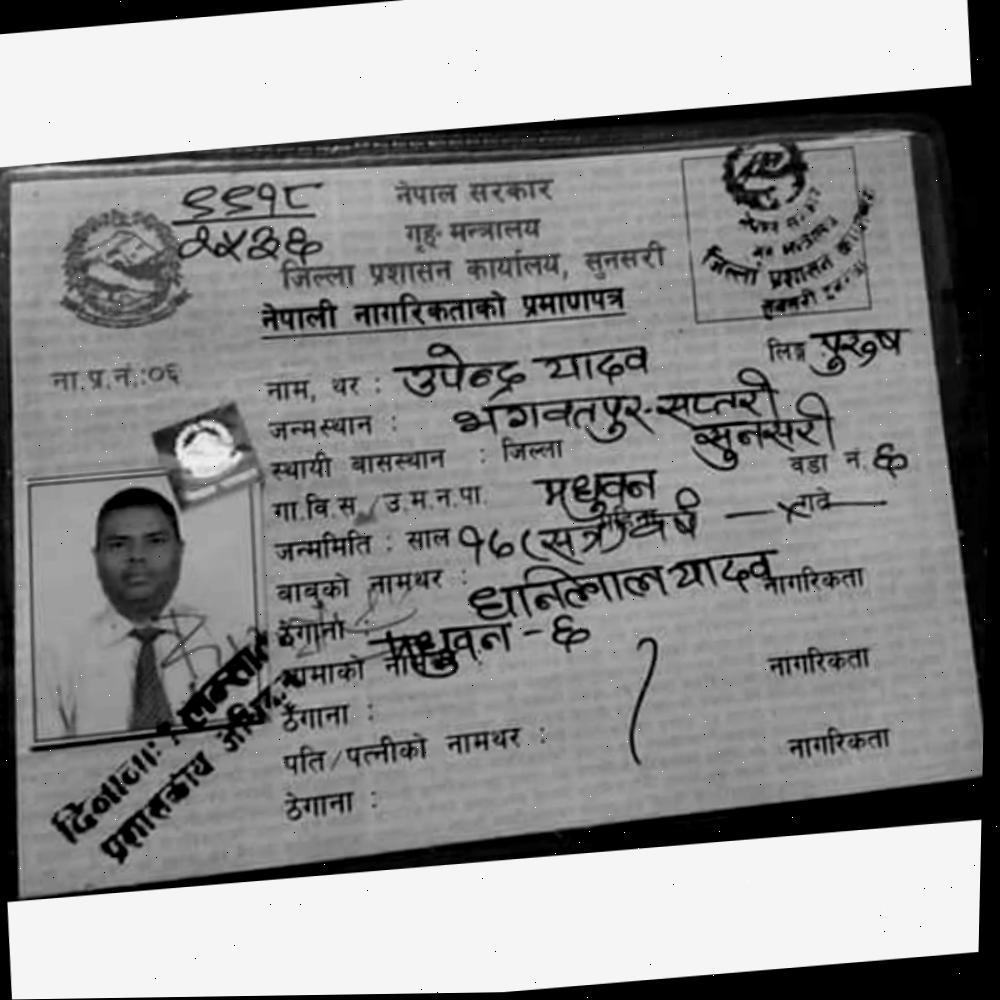 ९९१८
२५३६
नेपाल सरकार
गृह मन्त्रालय
जिल्ला प्रशासन कार्यालय, सुनसरी
नेपाली नागरिकताको प्रमाणपत्र
जिल्ला प्रशासन
ना.प्र.नं.:०६
लिङ्ग पुरुष
नाम, थर : उपेन्द्र यादव
जन्मस्थान : भगवतपुर-सप्तरी
स्थायी बासस्थान : जिल्ला सुनसरी
गा.वि.स./उ.म.न.पा. मधुवन वडा नं. ६
जन्ममिति : साल १७ (सत्र) वर्ष गते
बाबुको नामथर : धनिलाल यादव नागरिकता
ठेगाना मधुवन - ६
आमाको नामथर नागरिकता
ठेगाना :
पति/पत्नीको नामथर : नागरिकता
ठेगाना :
प्रशासकीय